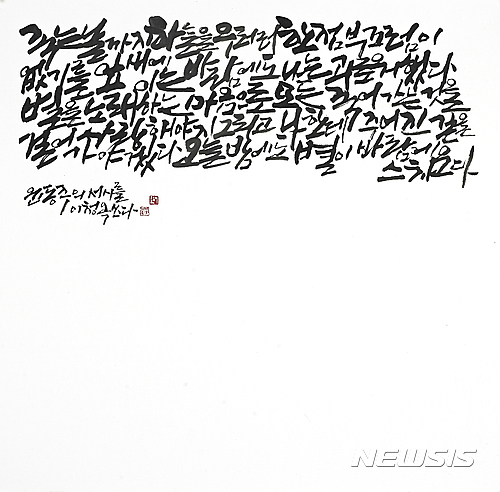 죽는 날까지 하늘을 우러러 한점 부끄럼이
없기를 잎새에 이는 바람에도 나는 괴로워했다
별을 노래하는 마음으로 모든 죽어가는 것을
사랑해야지 그리고 나한테 주어진 길을
걸어가야겠다 오늘밤에도 별이 바람에
스치운다
윤동주의 서시를
이청옥 쓰다
NEWSIS